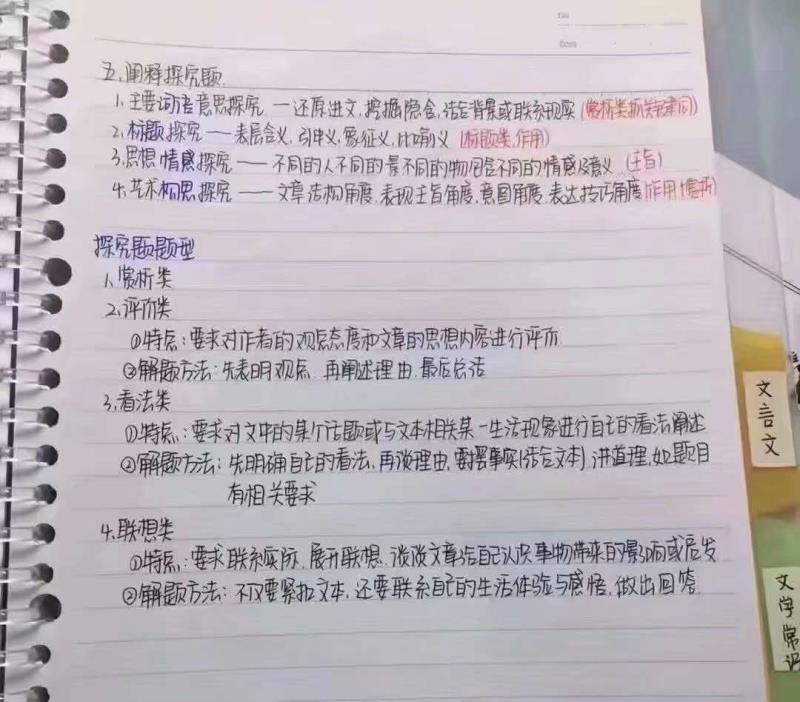 五、阐释探究题
1、主要词语意思探究 — 还原进文, 挖掘隐含, 结合背景或联系现实 (赏析类抓关键词)
2、标题探究 — 表层含义, 引申义, 象征义, 比喻义 (标题类, 作用)
3、思想情感探究 — 不同的人不同的景不同的物包含不同的情感及意义 (主旨)
4、艺术构思探究 — 文章结构角度, 表现主旨角度, 意图角度, 表达技巧角度 (作用+赏析)
探究题题型
1、赏析类
2、评价类
①特点:要求对作者的观点态度和文章的思想内容进行评价
②解题方法:先表明观点, 再阐述理由, 最后总结
3、看法类
①特点:要求对文中的某个话题或与文本相关某一生活现象进行自己的看法阐述
②解题方法:先明确自己的看法, 再谈理由, 要摆事实(结合文本), 讲道理, 如题目
有相关要求
4、联想类
①特点:要求联系实际, 展开联想, 谈谈文章给自己认识事物带来的影响或启发
②解题方法:不仅要紧扣文本, 还要联系自己的生活体验与感悟, 做出回答.
文言文
文学常识